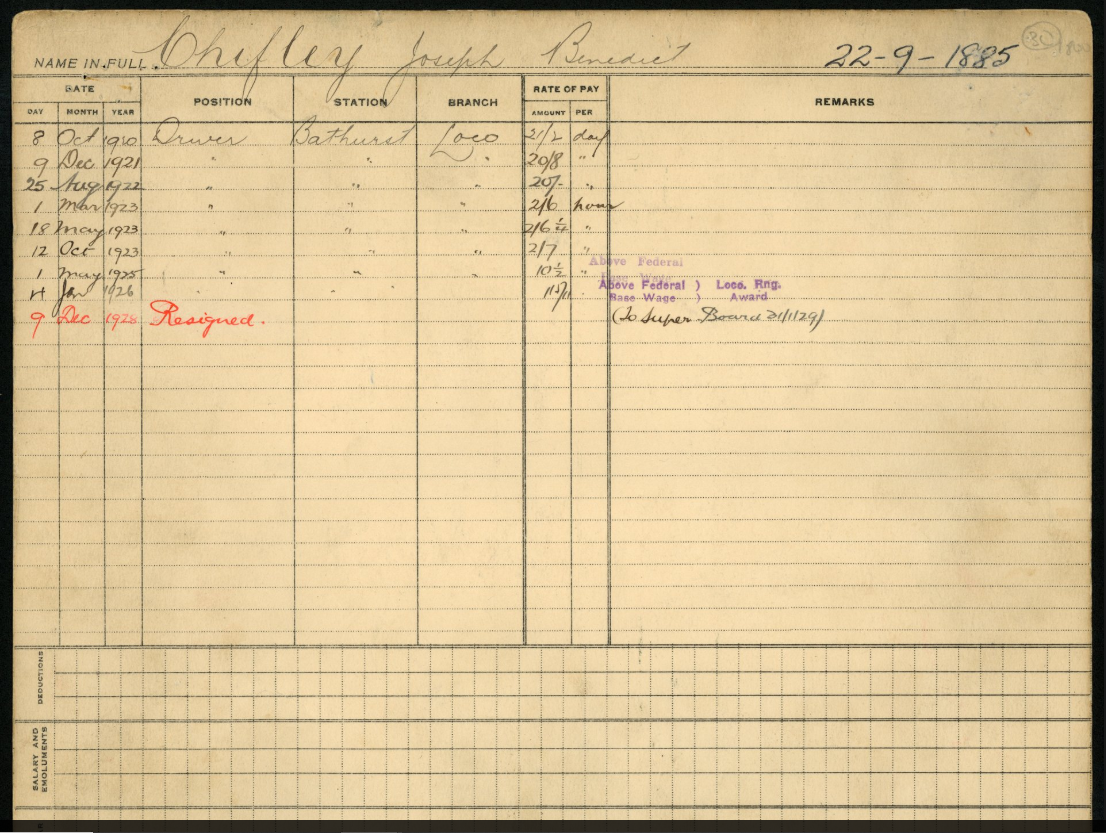 NAME IN FULL Chifley Joseph Benedict 22-9-1885
DATE POSITION STATION BRANCH RATE OF PAY REMARKS
DAY MONTH YEAR AMOUNT PER
8 Oct 1920 Driver Bathurst Loco 21/2 day
9 Dec 1921 " " " 20/8 "
25 Aug 1922 " " " 20/- "
1 Mar 1923 " " " 2/6 hour
18 May 1923 " " " 2/6 1/4 "
12 Oct 1923 " " " 2/7 "
Above Federal
1 May 1925 " " " 10 1/2 " Base Wage
4 Jan 1926 Above Federal ) Loco. Rng.
Base Wage ) Award
9 Dec 1928 Resigned. (To Super Board 21/1/29)
DEDUCTIONS
SALARY AND
EMOLUMENTS